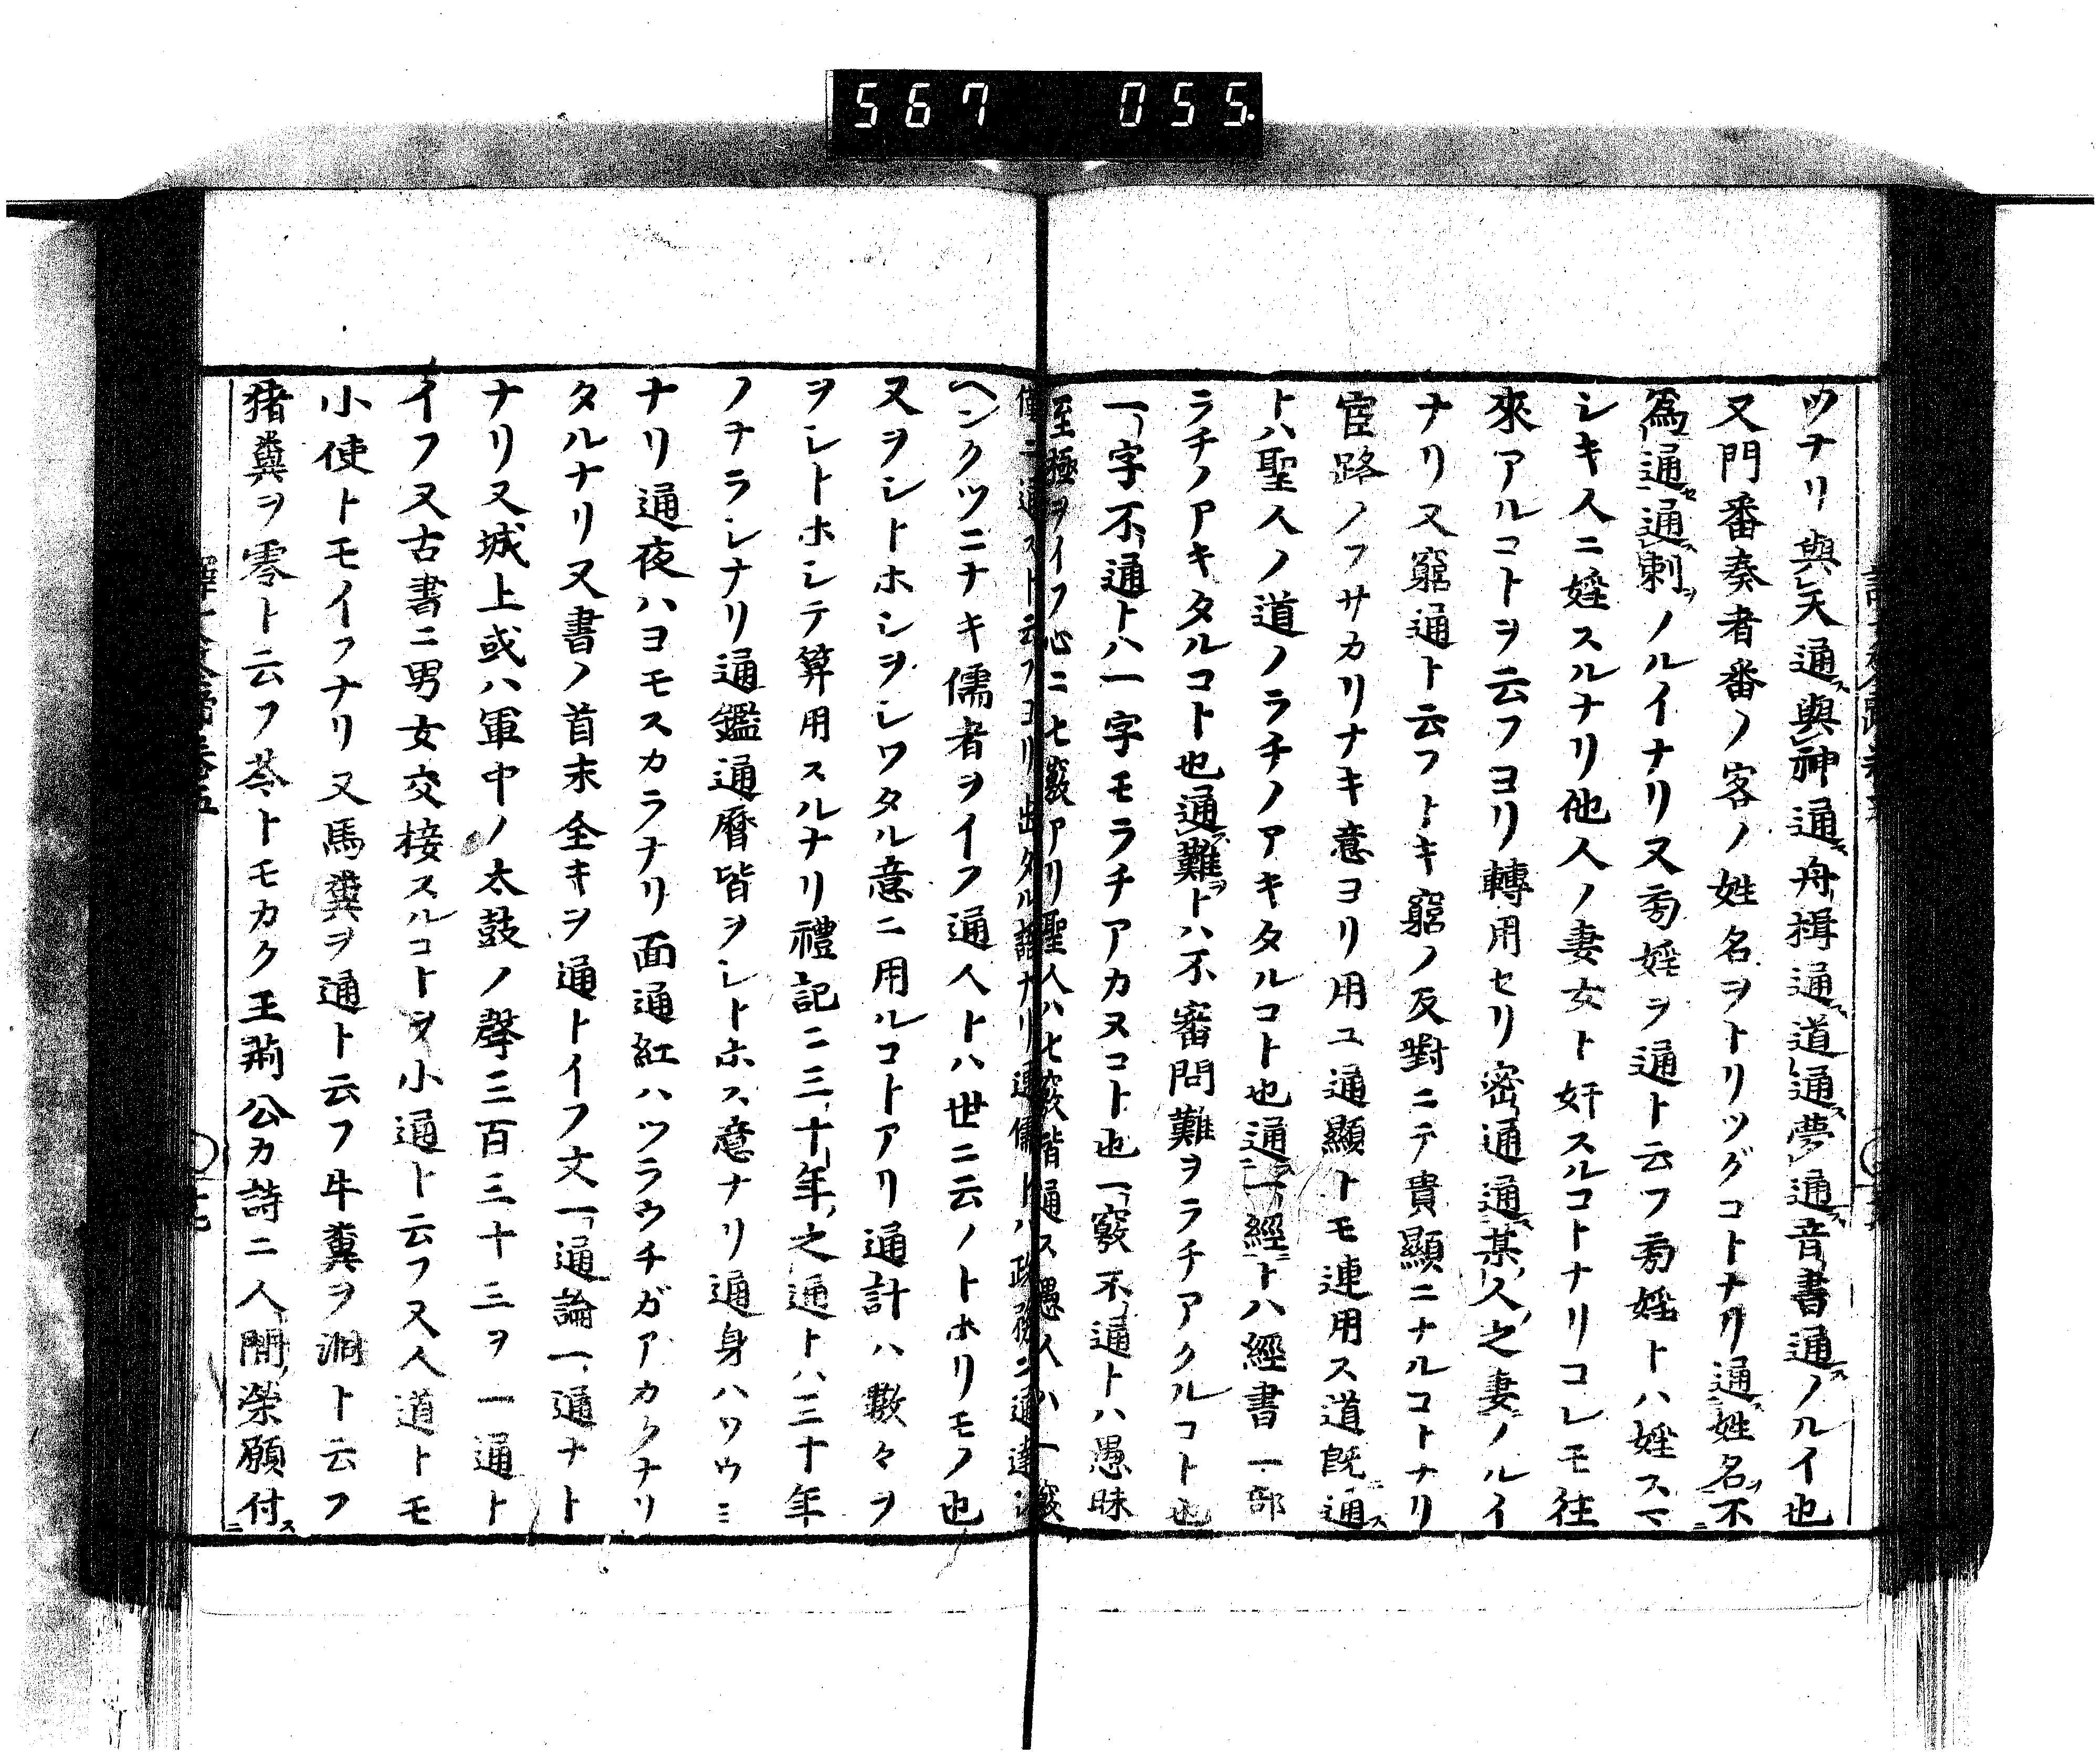 567 055
ウナリ與天通與神通舟楫通道通夢通音書通ノルイ也
又門番奏者番ノ客ノ姓名ヲトリツグコトナリ通姓名不
爲通通刺ノルイナリ又旁婬ヲ通ト云フ旁婬トハ婬スマ
シキ人ニ婬スルナリ他人ノ妻女ト奸スルコトナリコレモ往
來アルコトヲ云フヨリ轉用セリ密通通某人之妻ノルイ
ナリ又窮通ト云フトキ窮ノ反對ニテ貴顯ニナルコトナリ
宦路ノフサカリナキ意ヨリ用ユ通顯トモ連用ス道既通
トハ聖人ノ道ノラチノアキタルコト也通一經トハ經書一部
ラチノアキタルコト也通難トハ不審問難ヲラチアクルコト也
一字不通トハ一字モラチアカヌコト也一竅不通トハ愚昧
至極ヲイフ心ニ七竅アリ聖人ハ七竅皆通ス愚人ハ一竅
ニ通スト云フヨリ出タル語ナリ通儒トハ政務ニ通達
ヘンクツニナキ儒者ヲイフ通人トハ世ニ云ノトホリモノ也
又ヲシトホシヲシワタル意ニ用ルコトアリ通計ハ數々ヲ
ヲシトホシテ算用スルナリ禮記ニ三十年之通トハ三十年
ノナラシナリ通鑑通曆皆ヲシトホス意ナリ通身ハソウミ
ナリ通夜ハヨモスカラナリ面通紅ハツラウチガアカクナリ
タルナリ又書ノ首末全キヲ通トイフ文一通論一通ナト
ナリ又城上或ハ軍中ノ太鼓ノ聲三百三十三ヲ一通ト
イフ又古書ニ男女交接スルコトヲ小通ト云フ又人道トモ
小使トモイフナリ又馬糞ヲ通ト云フ牛糞ヲ洞ト云フ
猪糞ヲ零ト云フ苓トモカク王荊公カ詩ニ人間榮願付